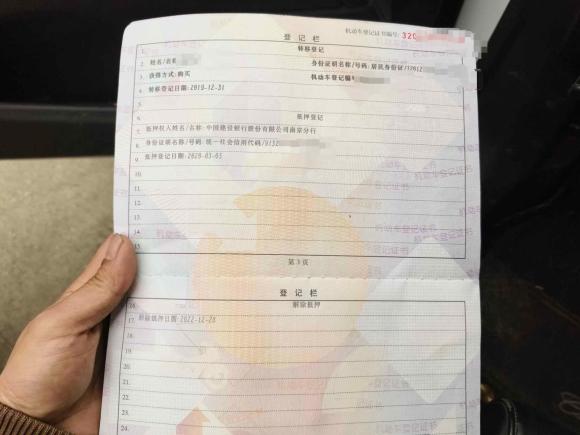 机动车登记证书编号: 320
登记栏
1.
转移登记
2. 姓名/名称
身份证明名称/号码: 居民身份证/32012
3. 获得方式: 购买
机动车登记编号
4. 转移登记日期: 2019-12-31
5.
6. 抵押登记
7. 抵押权人姓名/名称: 中国建设银行股份有限公司南京分行
8. 身份证明名称/号码: 统一社会信用代码/9132
9. 抵押登记日期: 2020-03-03
10.
11.
12.
13.
14.
15.
第3页
登记栏
16. 解除抵押
17. 解除抵押日期: 2022-12-28
18.
19.
20.
21.
22.
23.
24.
机动车登记证书